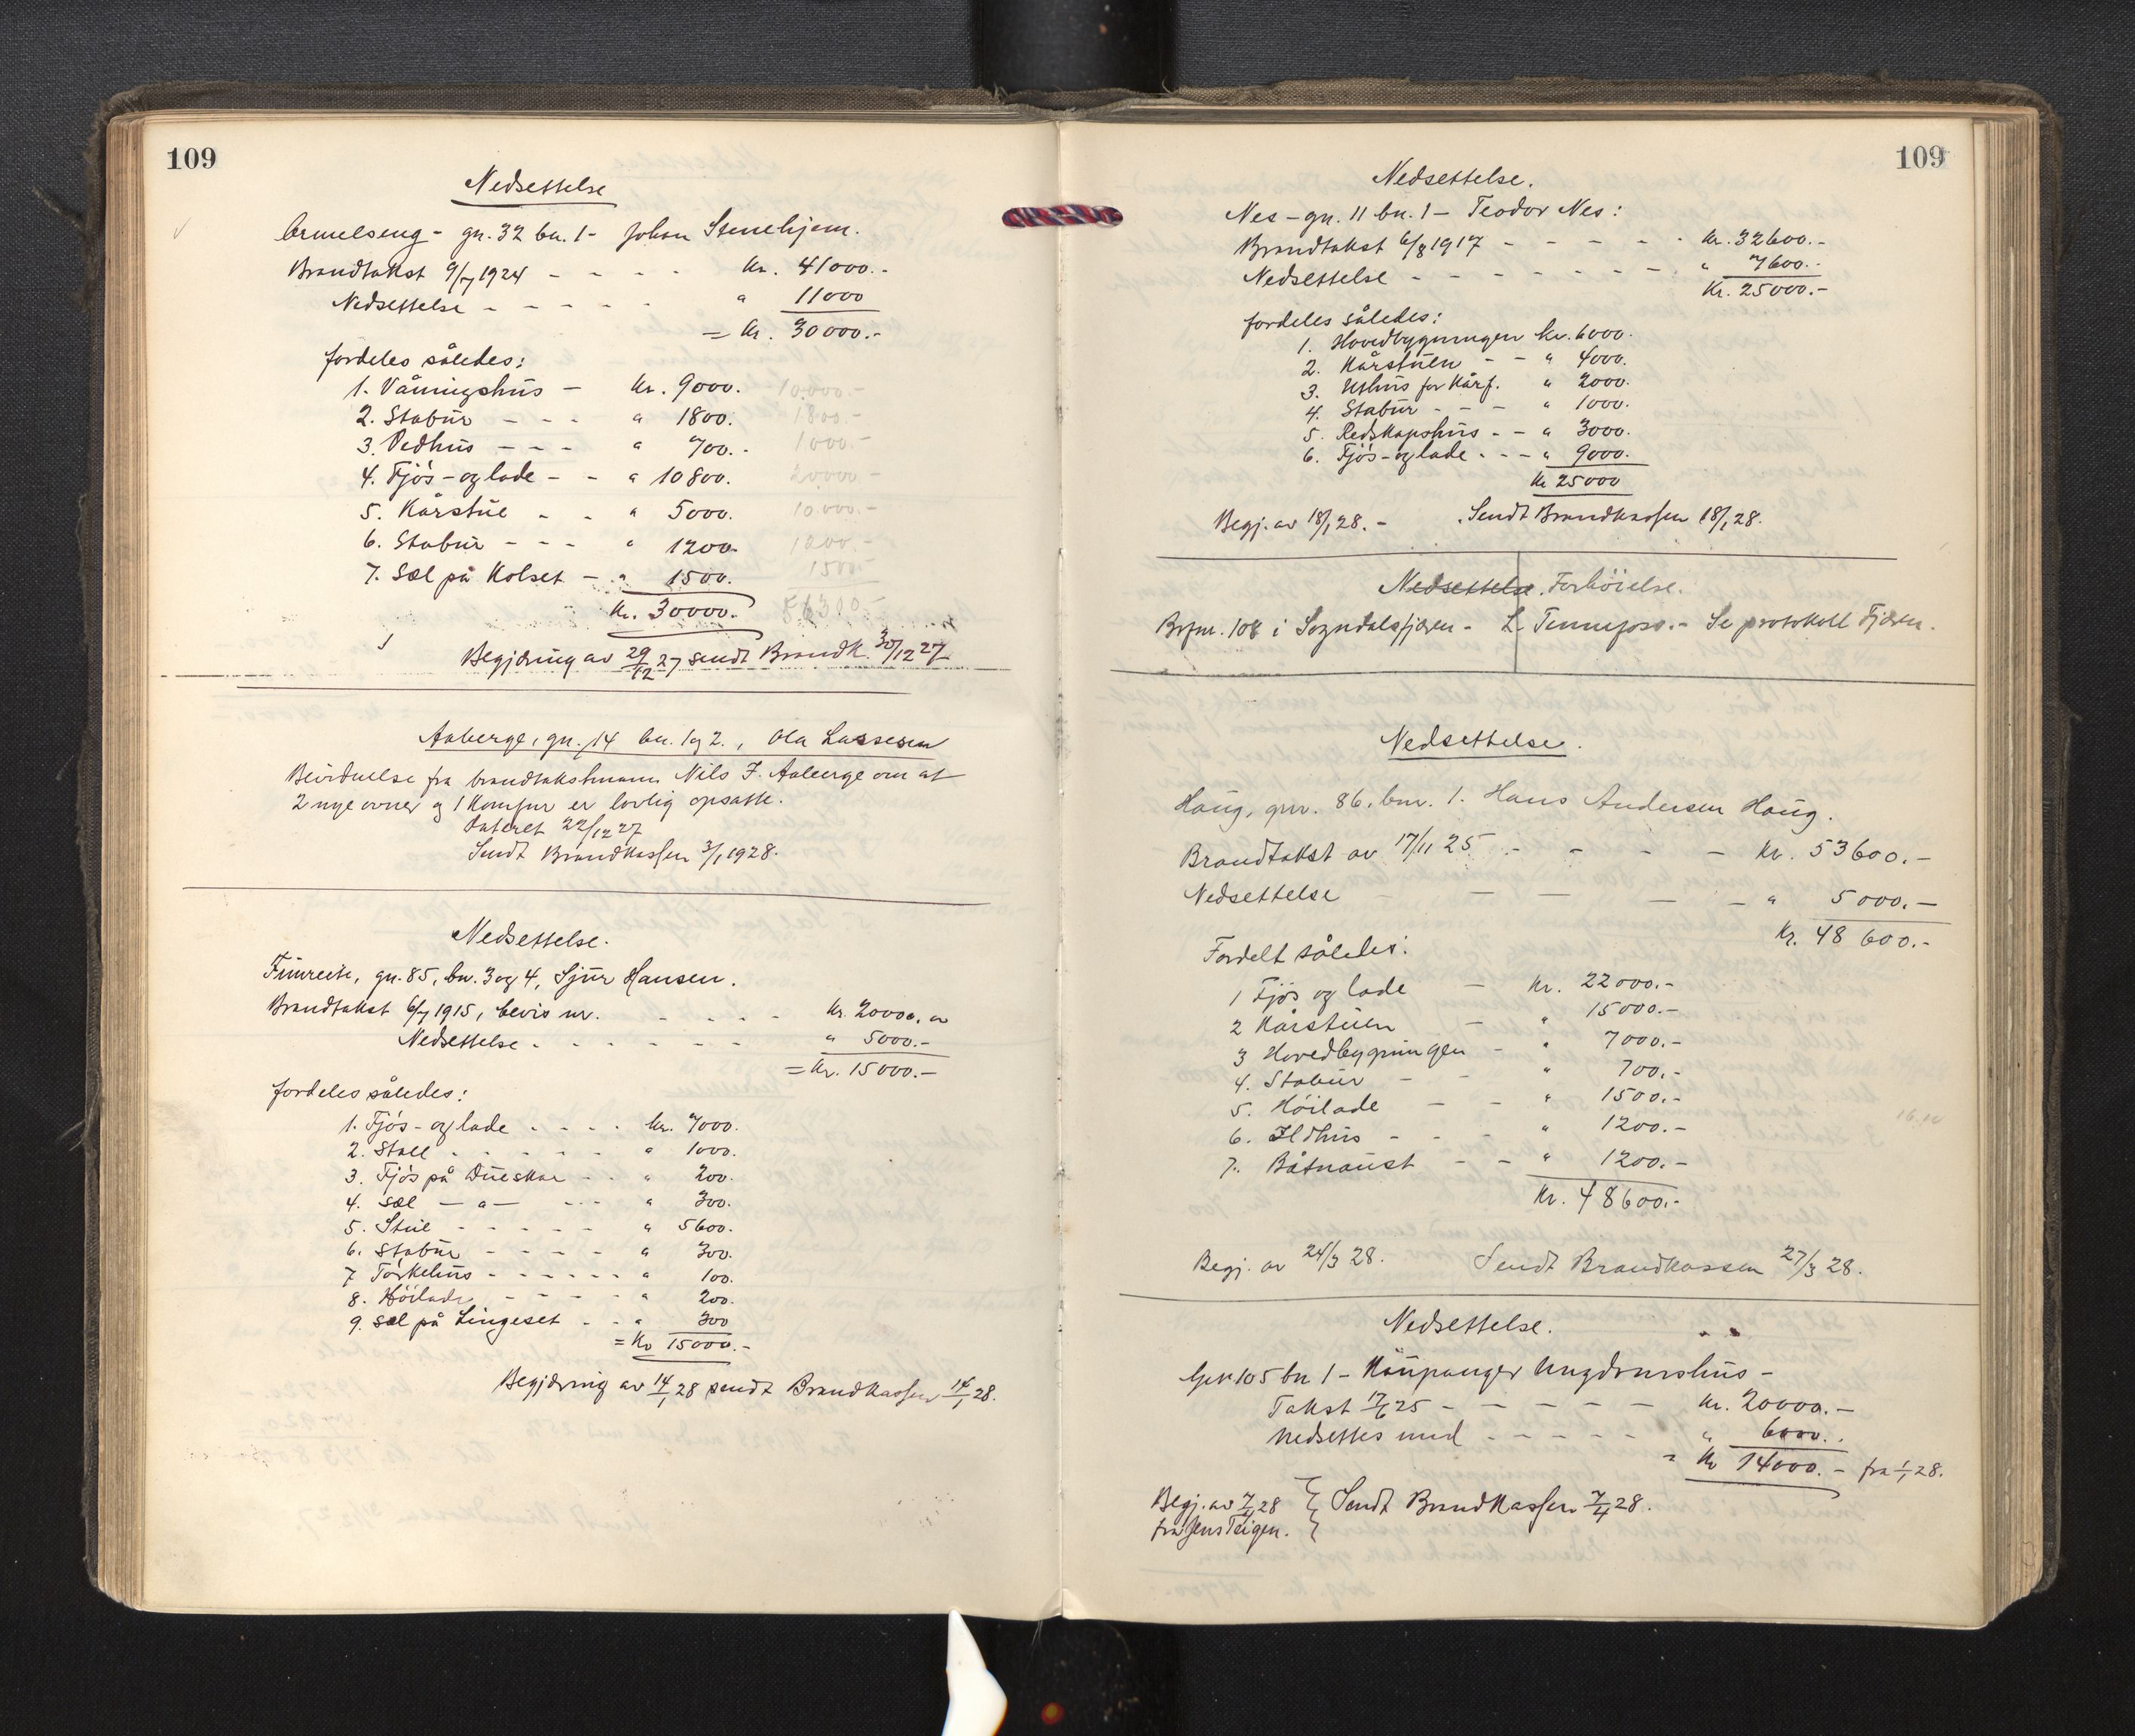 109
Nedsettelse
Ormelseng - gn. 32 bn. 1 - Johan Stenehjem.
Brandtakst 9/7 1924 - - - - kr. 41000.-
Nedsettelse - - - - - " 11000
= kr. 30000.-
fordeles således:
1. Våningshus - kr. 9000. 10.000.-
2. Stabur - - - " 1800. 1800.-
3. Vedhus - - - " 700.- 1000.-
4. Fjøs-og lade - - " 10800. 20000.-
5. Kårstue - - " 5000. 10.000.-
6. Stabur - - - " 1200.
7. Sæl på Kolset - " 1500. 1500
kr. 30000.-
Begjæring av 29/12 27 sendt Brandk. 30/12 27
Aaberge, gn. 14 bn. 1 og 2., Ola Lassesen
Bevidnelse fra brandtakstmann Nils J. Aaberge om at
2 nye ovner og 1 komfur er lovlig opsatte.
Dateret 22/12 27
Sendt Brandkassen 3/1 1928.
Nedsettelse.
Fimreite, gn. 85, bn. 3 og 4, Sjur Hansen.
Brandtakst 6/7 1915, bevis nr. - - - - kr. 20000.
Nedsettelse - - - - - - " 5000.-
= kr. 15000.-
fordeles således:
1. Fjøs-og lade - - - - kr. 7000.
2. Stall - - - - - - " 1000.
3. Fjøs på Dueskar - - " 200.
4. Sæl - " - - - - " 300.
5. Stue - - - - - " 5600.
6. Stabur - - - - " 300.
7 Tørkehus - - - - - - " 100.
8. Høilade - - - - " 200.
9. Sæl på Lingeset - - " 300
= Kr 15000.-
Begjæring av 14/1 28 sendt Brandkassen 14/1 28.
109
Nedsettelse.
Nes - gn. 11 bn. 1 - Teodor Nes:
Brandtakst 6/8 1917 - - - - - kr. 32600.-
Nedsettelse - - - - - - - - " 7600.-
Kr. 25000.-
fordeles således:
1. Hovedbygningen kr. 6000.
2. Kårstuen - - " 4000.
3. Uthus for Kårf. " 2000.
4. Stabur - - - " 1000.
5. Redskapshus - - " 3000.
6. Fjøs-og lade - - - " 9000.
Kr 25000
Begj. av 18/1 28. - Sendt Brandkassen 18/1 28.
Nedsettelse. Forhøielse.
Brfnr. 108 i Sogndalsfjæren - L. - Se protokoll Fjæren.
Nedsettelse.
Haug, gnr. 86, bnr. 1. Hans Andersen Haug.
Brandtakst av 17/11 25 - - - - Kr. 53600.-
Nedsettelse - - - - - " 5000.-
Kr. 48 600.-
Fordelt således:
1 Fjøs og lade - Kr. 22000.-
2 Kårstuen - " 15000.-
3 Hovedbygningen - " 7000.-
4. Stabur - - " 700.-
5. Høilade - - " 1500.-
6. Ildhus - - - " 1200.-
7. Båtnaust - - " 1200.-
Kr. 48600.-
Begj. av 24/3 28. Sendt Brandkassen 27/3 28.
Nedsettelse.
Gn 105 bn 1 - Kaupanger Ungdomshus -
Takst 17/6 25 - - - - - - kr. 20000.-
Nedsettes med - - - - - " 6000.-
= Kr 14000.- fra 1/1 28.
Begj. av 7/4 28 } Sendt Brandkassen 7/4 28.
fra Jens Teigen.